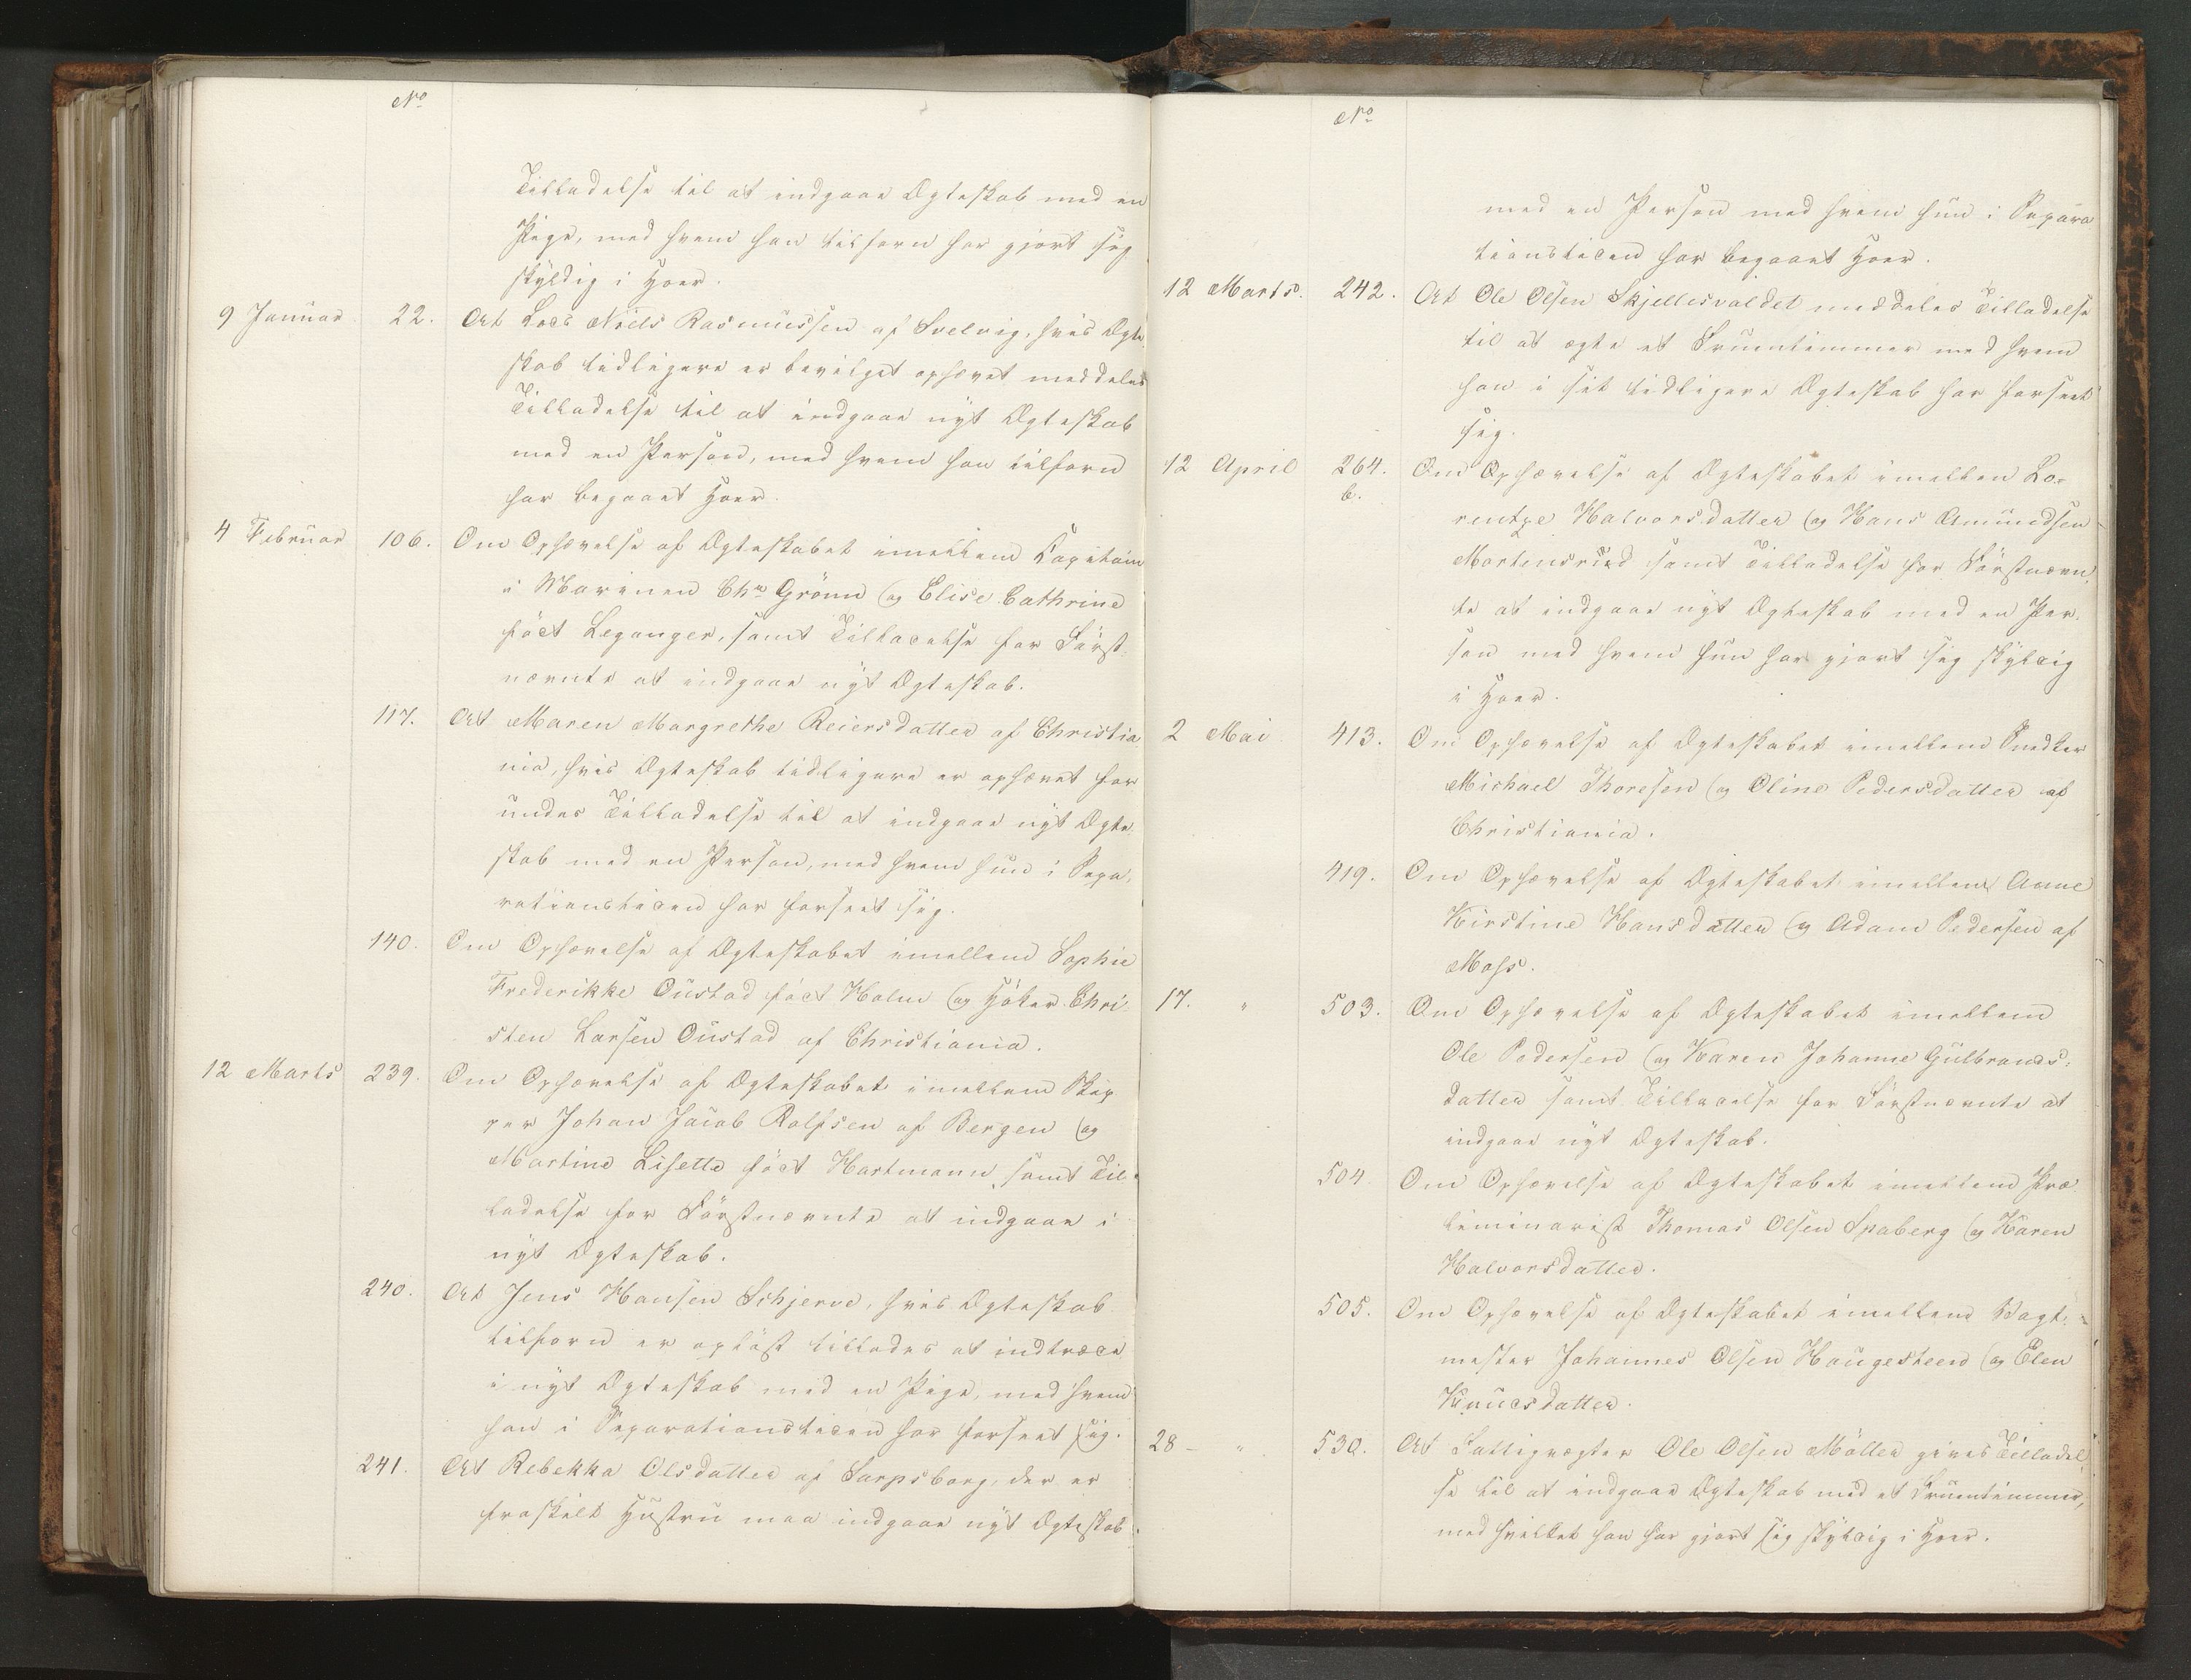 No
Tilladelse til at indgaae Ægteskab med en
Pige, med hvem han tilforn har gjort sig
skyldig i Hoer.
9 Januar 22. At Lods Niels Rasmussen af Svelvig, hvis Ægte
skab tidligere er bevilget ophævet meddeles
Tilladelse til at indgaae nyt Ægteskab
med en Person, med hvem han tilforn
har begaaet Hoer.
4 Februar 106. Om Ophævelse af Ægteskabet imellem Capitain
i Marinen Chr Grönn og Elise Cathrine
født Leganger, samt Tilladelse for Först:
nævnte at indgaae nyt Ægteskab.
117. At Maren Margrethe Reiersdatter af Christia
nia, hvis Ægteskab tidligere er ophævet for
undes Tilladelse til at indgaae nyt Ægte
skab med en Person, med hvem hun i Sepa,
rationstiden har forseet sig.
140. Om Ophævelse af Ægteskabet imellem Sophie
Frederikke Oustad født Holm og Höker Chri-
sten Larsen Oustad af Christiania.
12 Marts 239. Om Ophævelse af Ægteskabet imellem Skip
per Johan Jacob Rolfsen af Bergen og
Martine Lisette født Hartmann, samt Til
ladelse for Förstnævnte at indgaae i
nyt Ægteskab.
240. At Jens Hansen Schjerve, hvis Ægteskab
tilforn er oplöst tillades at indtræde
i nyt Ægteskab med en Pige, med hvem
han i Separationstiden har forseet sig.
241. At Rebekka Olsdatter af Sarpsborg, der er
fraskilt Hustru maa indgaae nyt Ægteskab
No
med en Person med hvem hun i Separa
tionstiden har begaaet Hoer.
12 Marts. 242. At Ole Olsen Skjellesvaldet meddeles Tilladelse
til at ægte et Fruentimmer med hvem
han i sit tidligere Ægteskab har forseet
sig.
12 April 264. Om Ophævelse af Ægteskabet imellem Lo-
b.
rentze Halvorsdatter og Hans Amundsen
Mortensrud samt Tilladelse for Förstnævn,
te at indgaae nyt Ægteskab med en Per.
son med hvem hun har gjort sig skyldig
i Hoer.
2 Mai 413. Om Ophævelse af Ægteskabet imellem Snedker
Michael Thoresen og Oline Pedersdatter af
Christiania.
419. Om Ophævelse af Ægteskabet imellem Anne
Kirstine Hansdatter og Adam Pedersen af
Moss.
17. " 503. Om Ophævelse af Ægteskabet imellem
Ole Pedersen og Karen Johanne Gulbrands:
datter samt Tilladelse for Förstnævnte at
indgaae nyt Ægteskab.
504 Om Ophævelse af Ægteskabet imellem Præ
liminarist Thomas Olsen Spaberg og Karen
Halvorsdatter.
505. Om Ophævelse af Ægteskabet imellem Vagt:
mester Johannes Olsen Haugesteen og Elen
Knudsdatter.
28 - " 530. At Fattigvægter Ole Olsen Möller gives Tilladel
se til at indgaae Ægteskab med et Fruentimmer,
med hvilket han har gjort sig skyldig i Hoer.